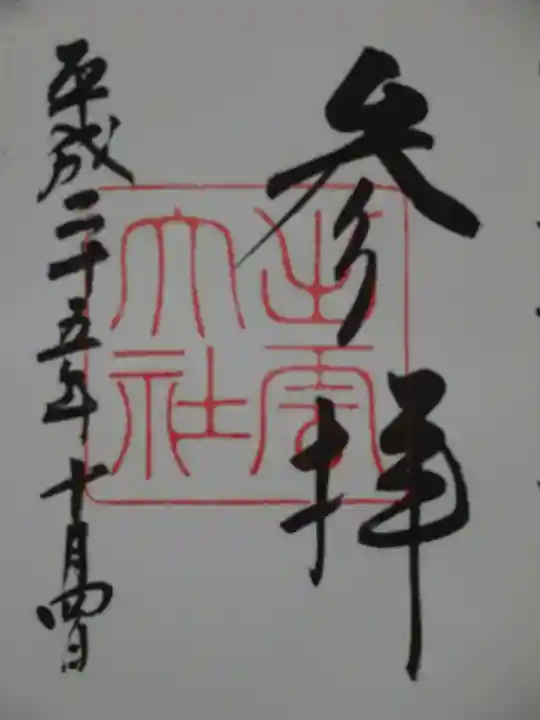 参拝
出雲大社
平成二十五年十月四日